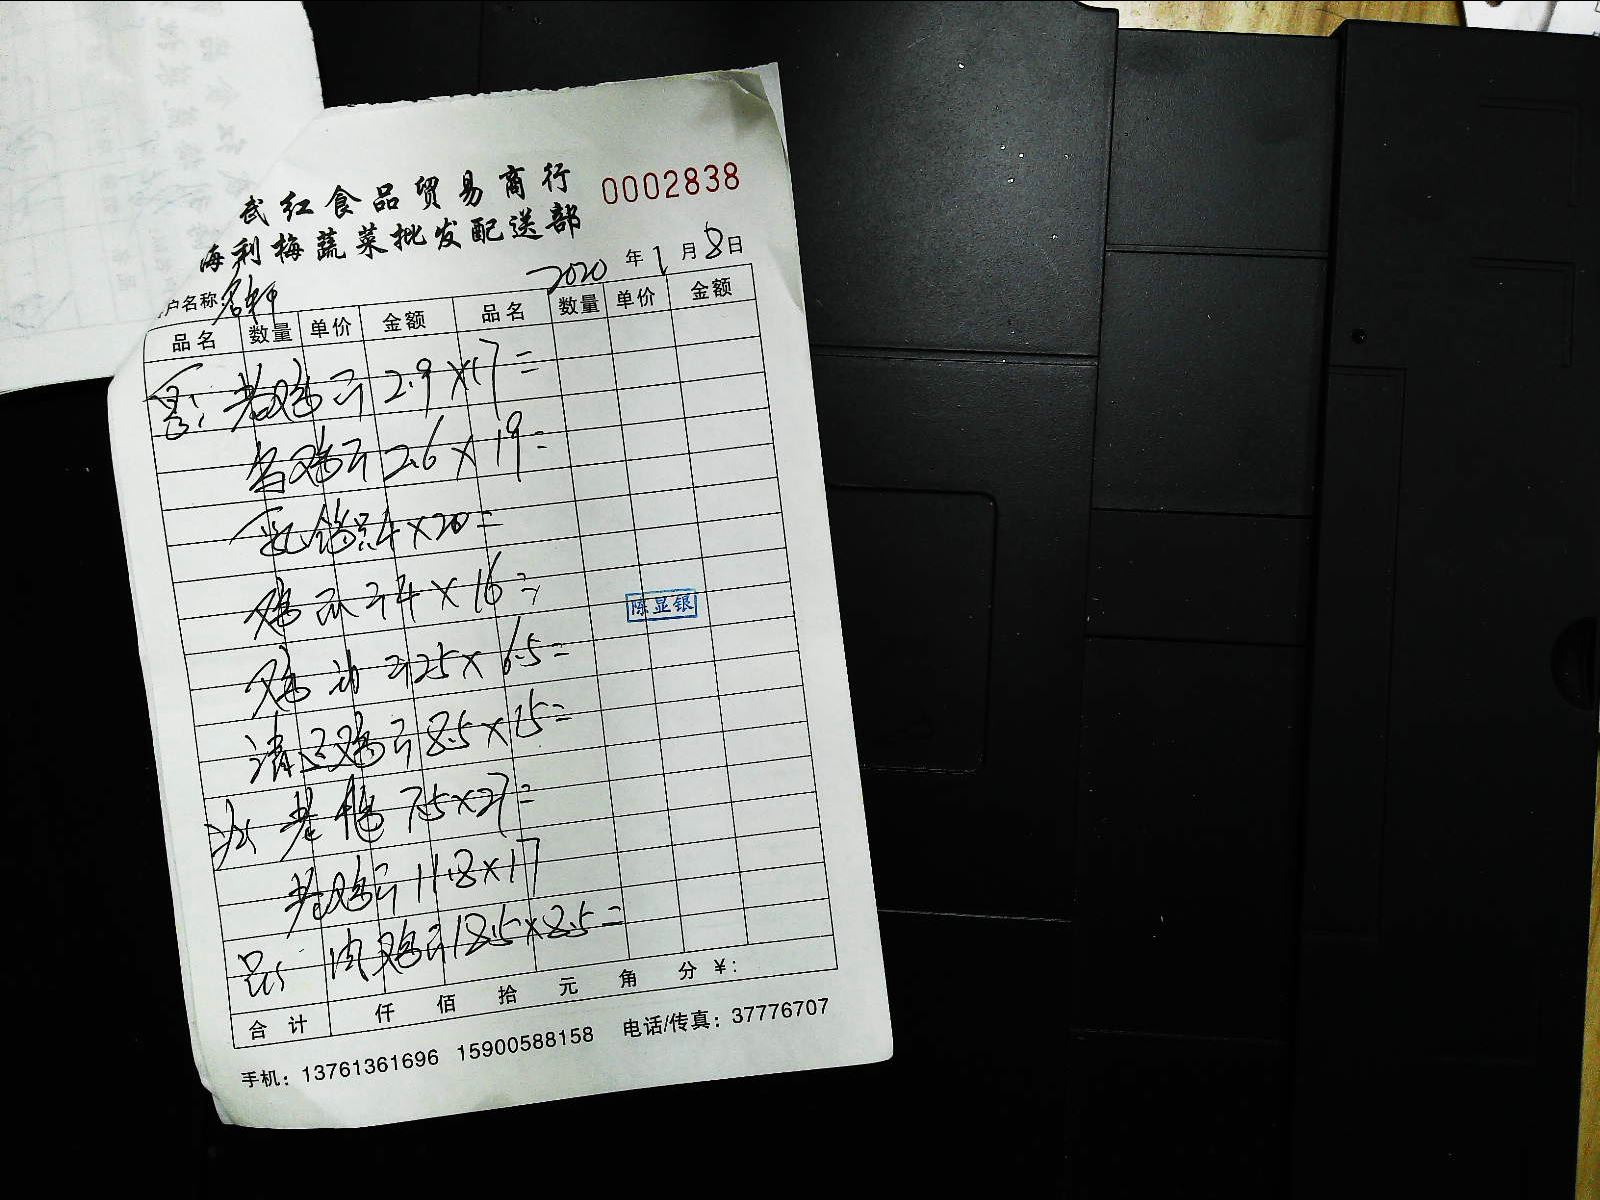 武红食品贸易商行 0002838
海利梅蔬菜批发配送部
户名称: 2020年1月8日
品名 数量 单价 金额 品名 数量 单价 金额
老鸡 2.9×17=
鸡 2.6×19=
乳鸽 4×20=
鸡 4×16=
鸡 25×6.5=
清远鸡 8.5×15=
老鸭 7.5×27=
老鸡 11.8×17
肉鸡 18.5×8.5=
陈显银
合计 仟 佰 拾 元 角 分 ¥:
手机: 13761361696 15900588158 电话/传真: 37776707